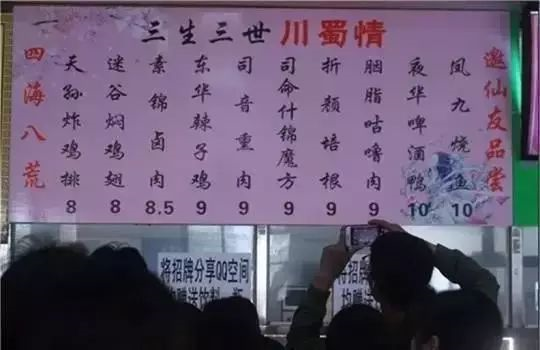 三生三世川蜀情
四海八荒
天孙炸鸡排 8
迷谷焖鸡翅 8
素锦卤肉 8.5
东华辣子鸡 9
司音熏肉 9
司命什锦魔方 9
折颜培根 9
胭脂咕噜肉 9
夜华啤酒鸭 10
凤九烧鱼 10
邀仙友品尝
将招牌分享QQ空间
均赠送饮料一瓶